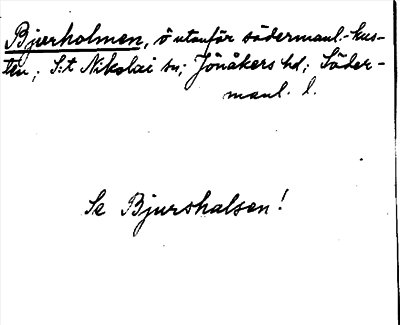 Bjurholmen, ö utanför södermanl.-kus-
ten; S:t Nikolai sn; Jönåkers hd; Söder-
manl. l.
Se Bjurshalsen!